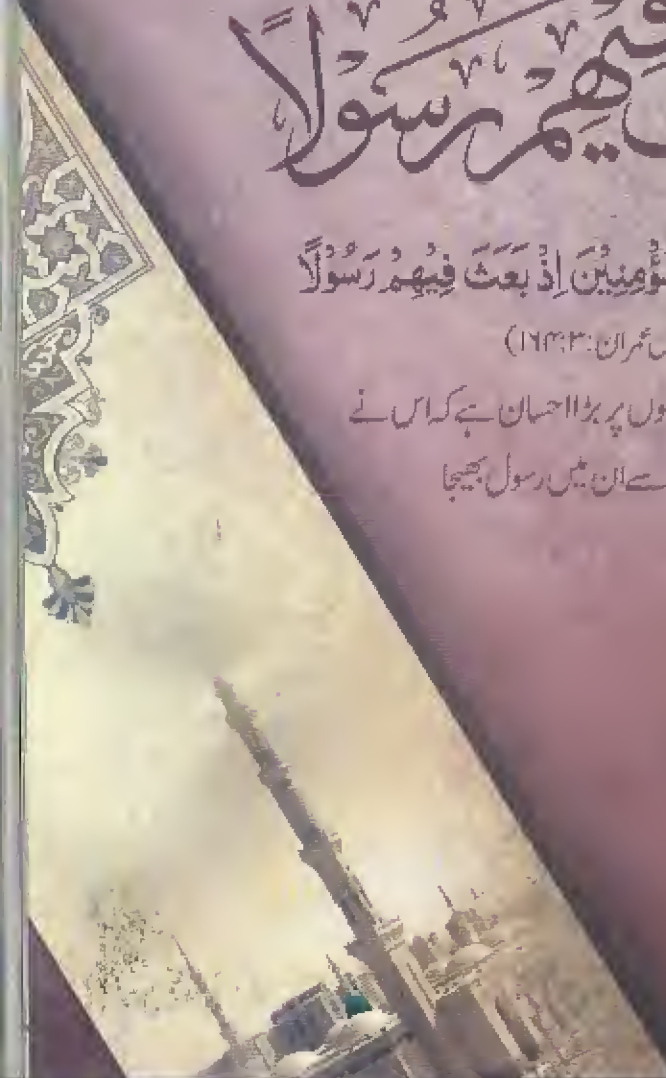 فِيْهِمْ رَسُوْلًا
إِذْ بَعَثَ فِيْهِمْ رَسُوْلًا
عمران:۳:۱۶۴)
پر بڑا احسان ہے کہ اس نے
سے ان میں رسول بھیجا